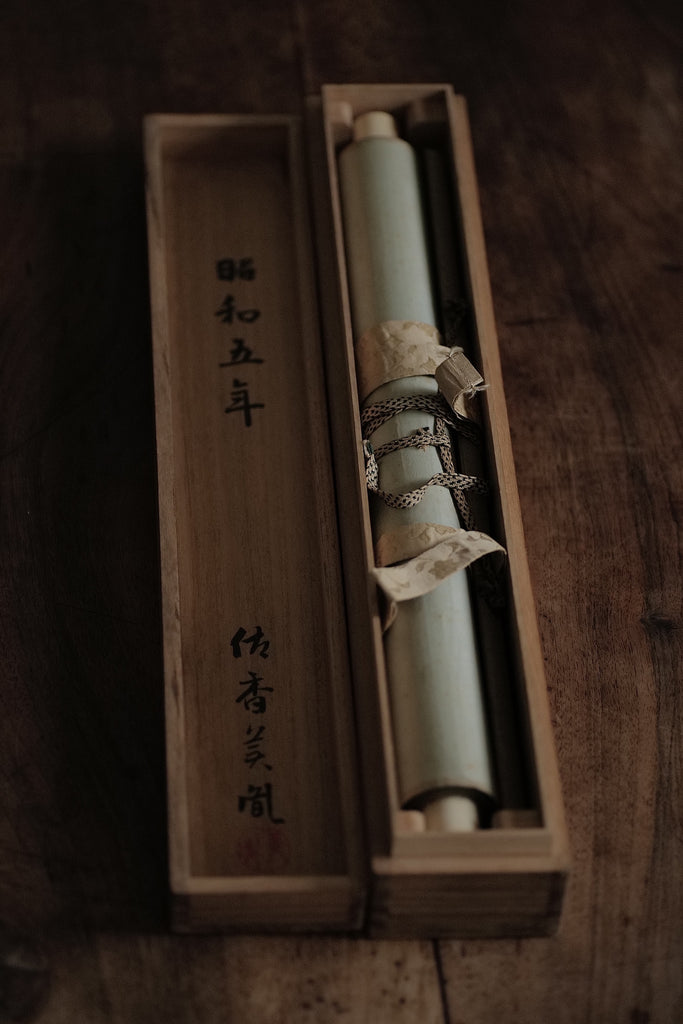 昭和五年
佐香美凬